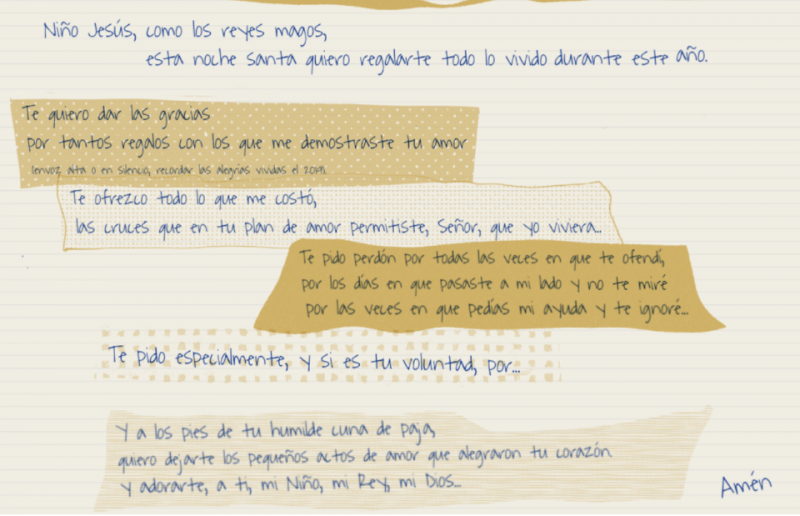 Niño Jesús, como los reyes magos,
esta noche santa quiero regalarte todo lo vivido durante este año.
Te quiero dar las gracias
por tantos regalos con los que me demostraste tu amor
(envoz alta o en silencio, recordar las alegrías vividas el 2019).
Te ofrezco todo lo que me costó,
las cruces que en tu plan de amor permitiste, Señor, que yo viviera...
Te pido perdón por todas las veces en que te ofendí,
por los días en que pasaste a mi lado y no te miré
por las veces en que pedías mi ayuda y te ignoré...
Te pido especialmente, y si es tu voluntad, por...
Y a los pies de tu humilde cuna de paja,
quiero dejarte los pequeños actos de amor que alegraron tu corazón
y adorarte, a ti, mi Niño, mi Rey, mi Dios...
Amén